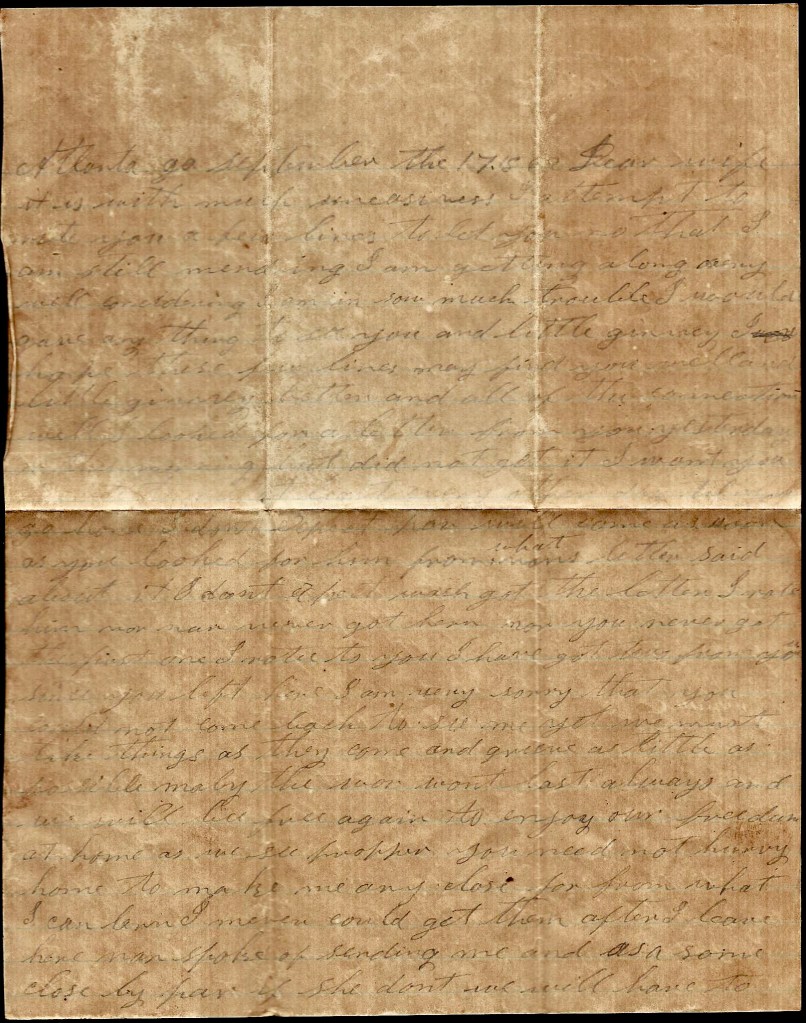 Atlanta ga september the 17. 1862 Dear wife
it is with much uneasiness I attempt to
write you a few lines to let you no that I
am still mending I am getting along very
well considering I am in sow much trouble I would
gave any thing to see you and little ginney I
hope these few lines may find you well and
little ginney better and all of the connection
well I looked for a letter from you yesterday
did not get it I want you
go home I dont expect you will come as soon
as you looked for him from what mans letter said
about it I dont expect wash got the letter I rote
him nor nan never got hern nor you never got
the first one I rote to you I have got two from you
since you left here I am very sorry that you
could not come back to see me yet we must
take things as they come and grieve as little as
posible maby the wor wont last always and
we will bee free again to enjoy our freedom
at home as we see propper you need not hurry
home to make me any close for from what
I can lern I never could get them after I leave
here nan spoke of sending me and asa some
close by par if she dont we will have to